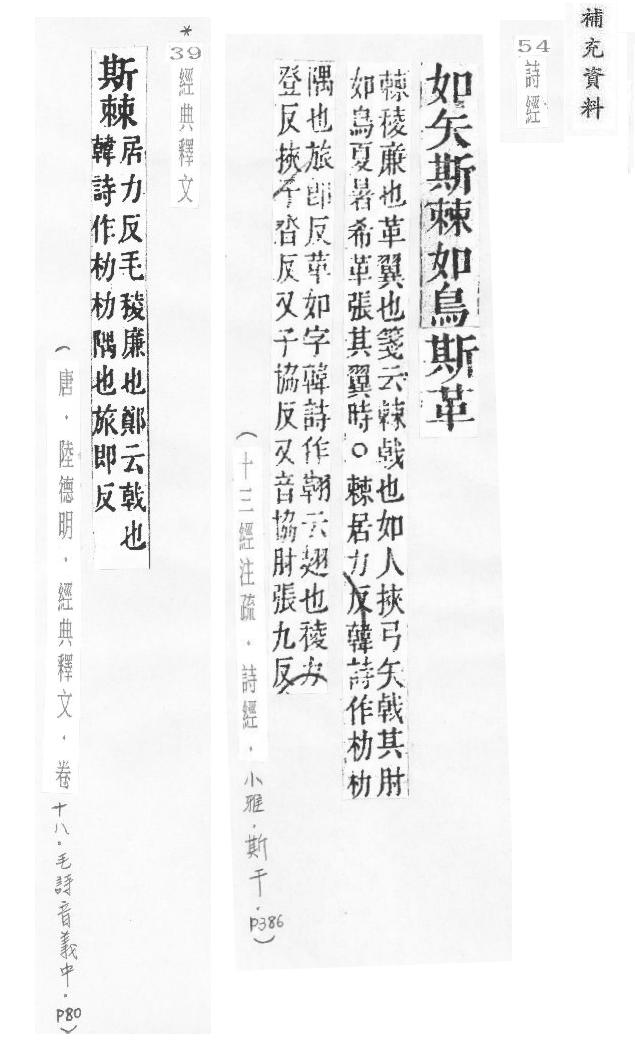 補充資料
54
詩經
如矢斯棘如鳥斯革
棘稜廉也革翼也箋云棘戟也如人挾弓矢戟其肘
如鳥夏暑希革張其翼時○棘居力反韓詩作朸朸
隅也旅即反革如字韓詩作云翅也稜力
登反挾子沓反又子協反又音協肘張九反
(十三經注疏.詩經.小雅.斯干.P386)
*
39
經典釋文
斯棘
居力反毛稜廉也鄭云戟也
韓詩作朸朸隅也旅即反
(唐.陸德明.經典釋文.卷十八.毛詩音義中.P80)